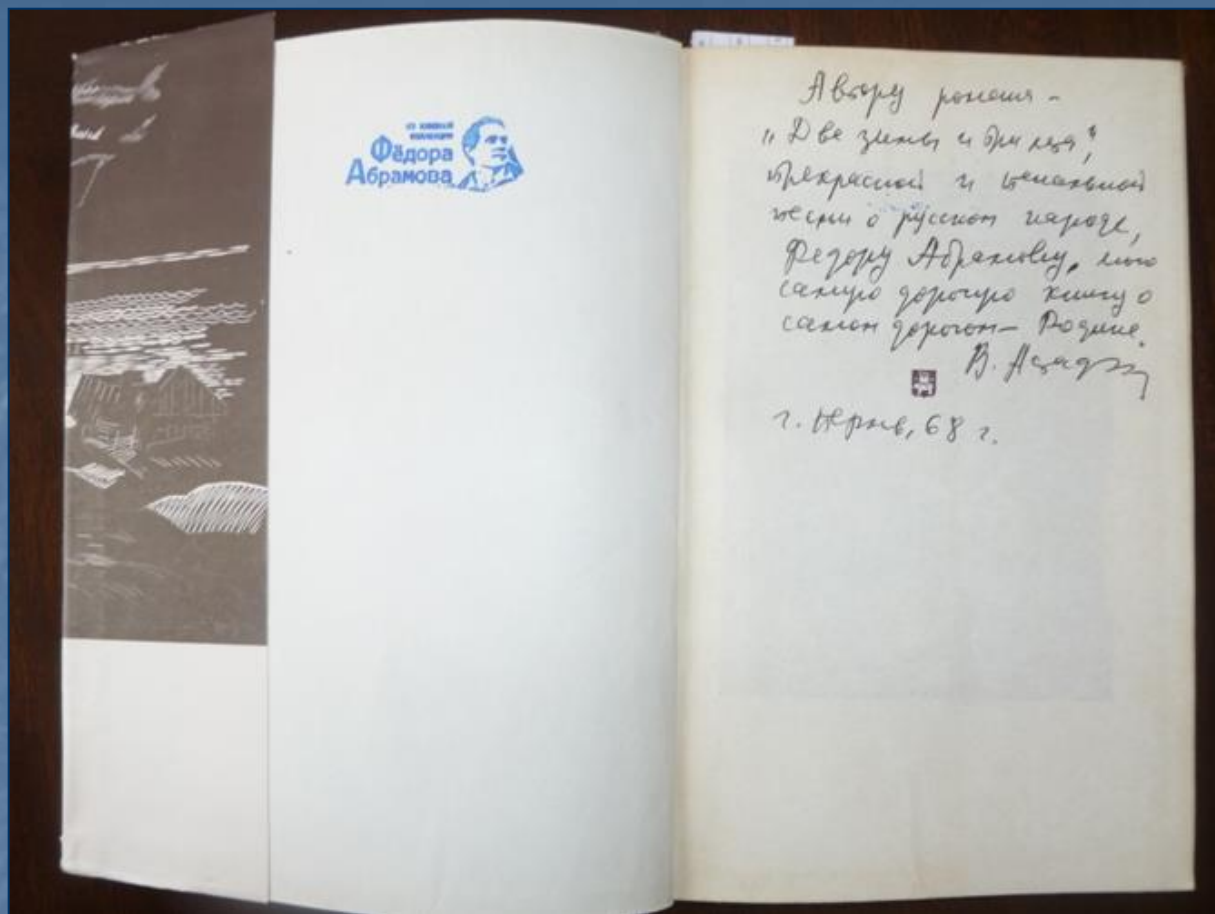 из книжной
коллекции
Фёдора
Абрамова
Автору романа –
„Две зимы и три лета",
прекрасной и печальной
песни о русском народе,
Федору Абрамову, мою
самую дорогую книгу о
самом дорогом – Родине.
В. Астафьев
г. Пермь, 68 г.